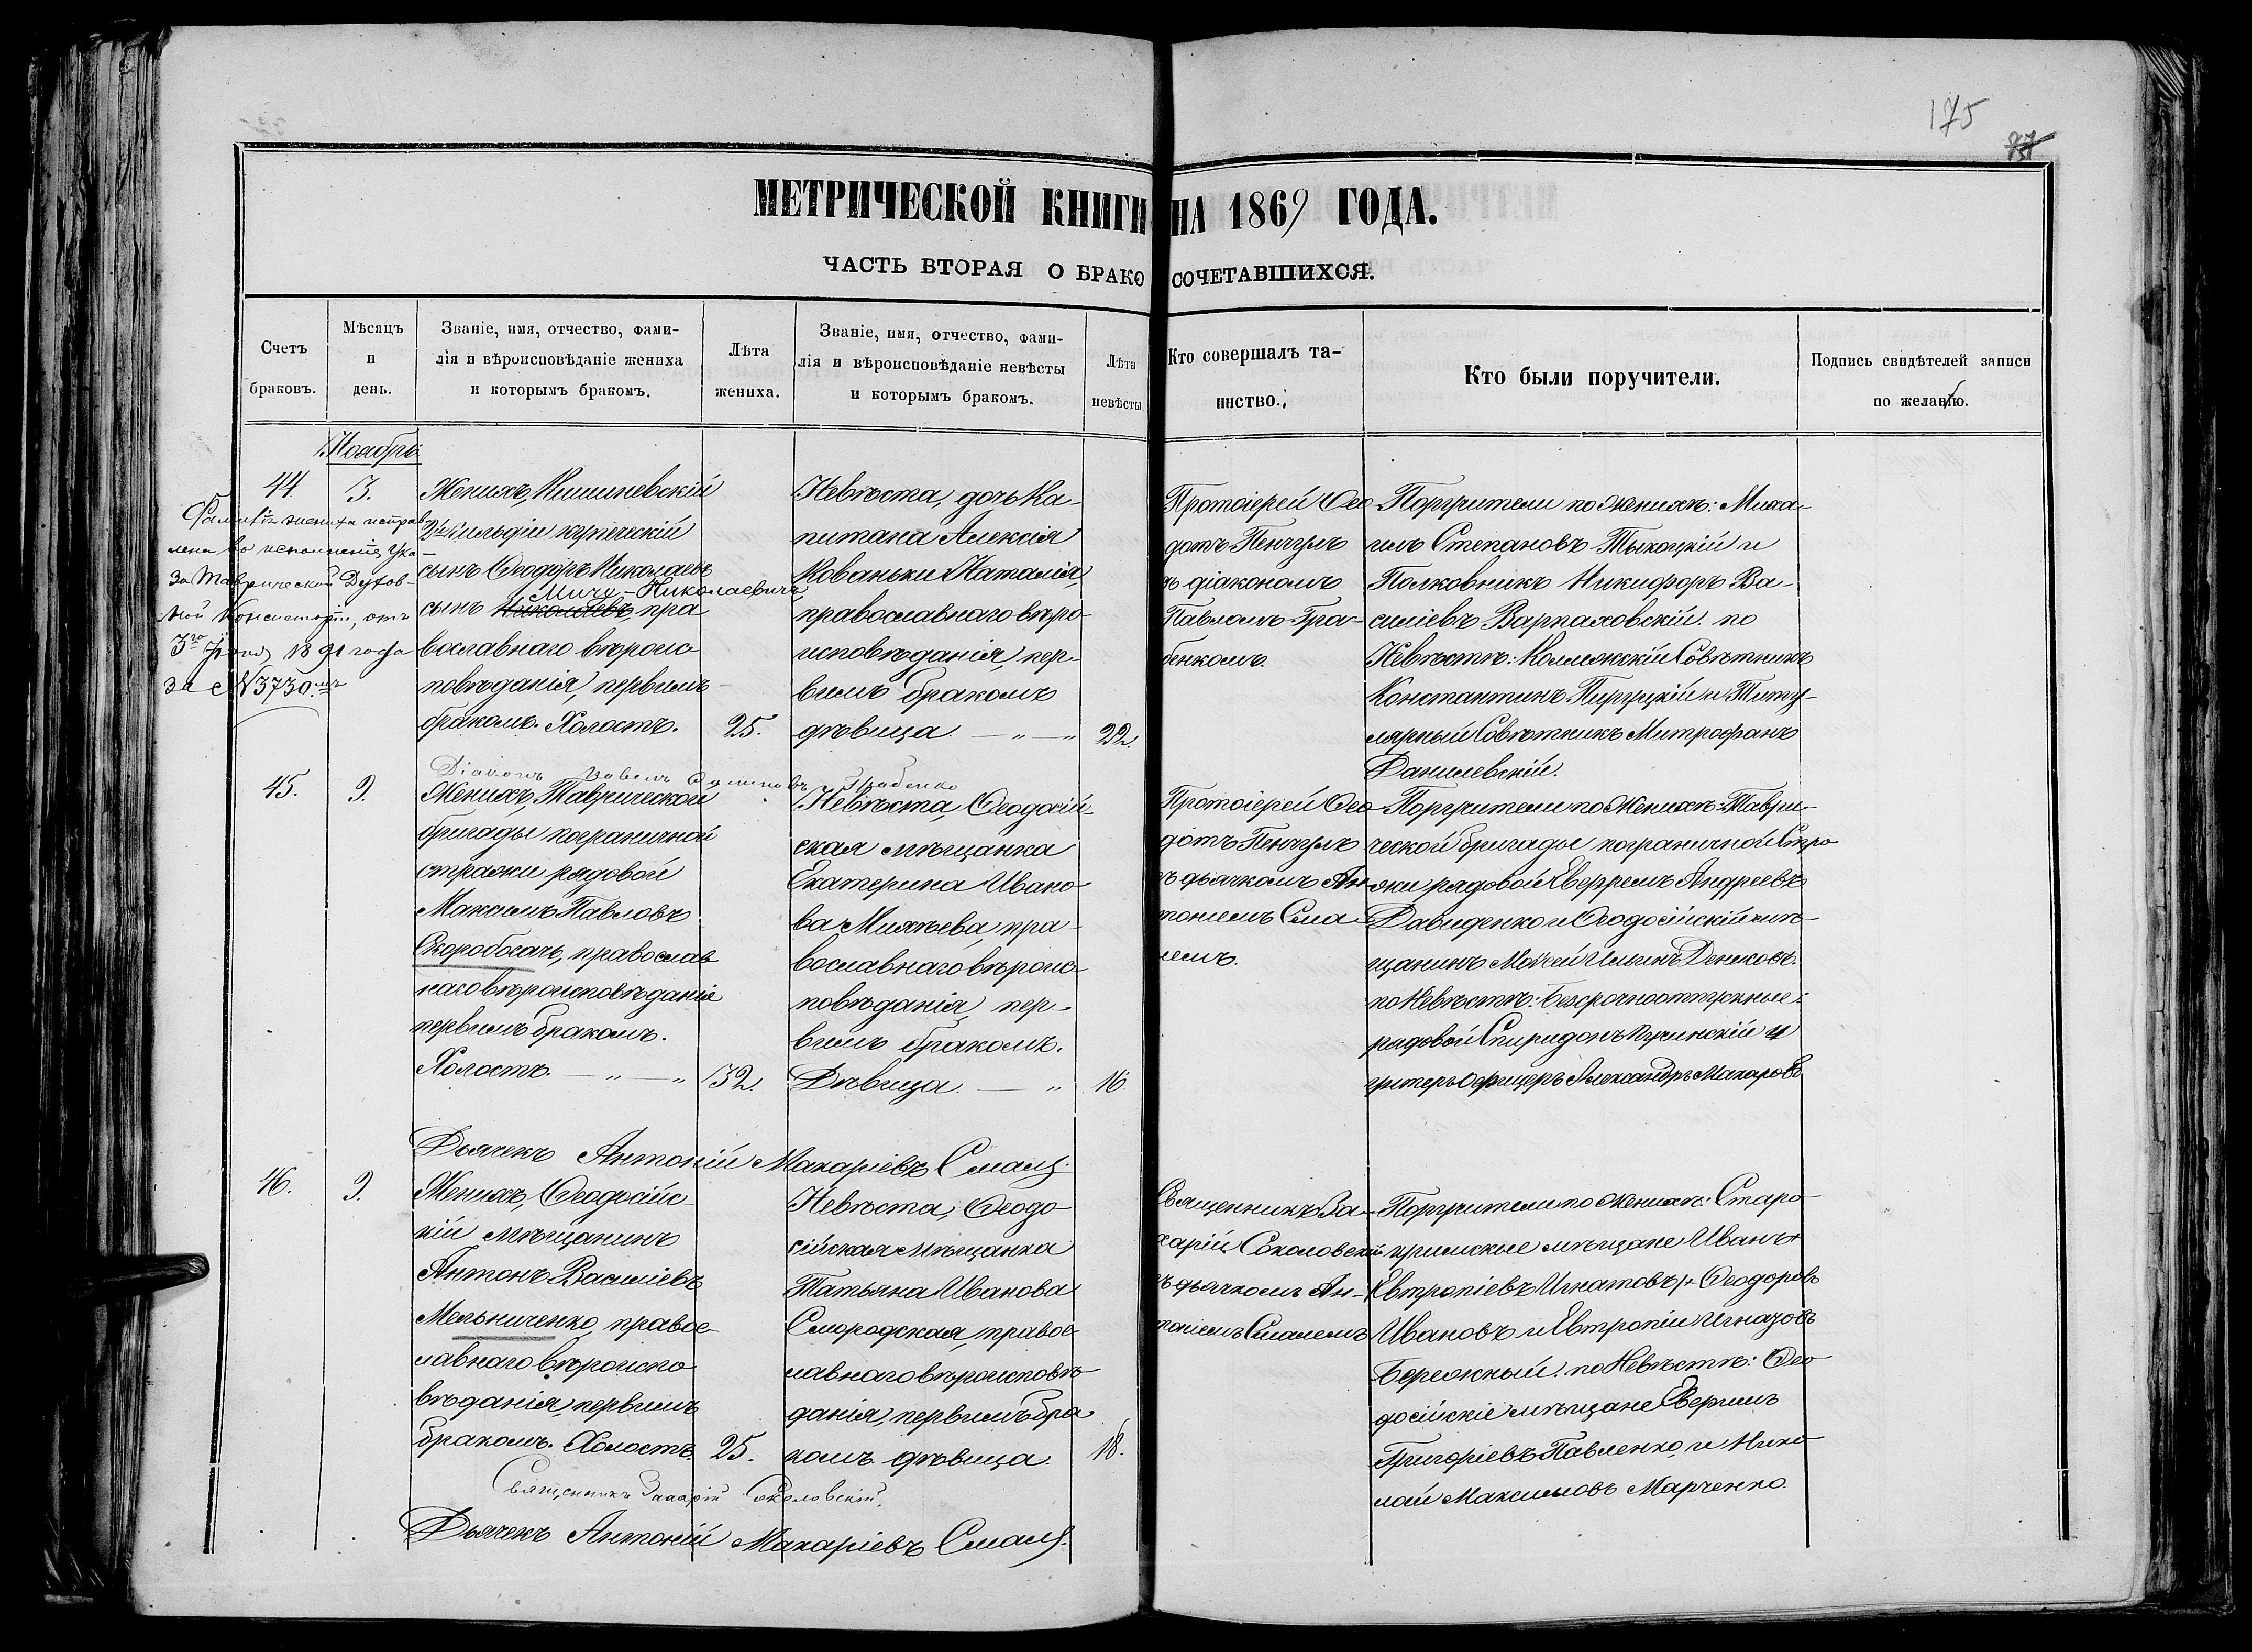 175
МЕТРИЧЕСКОЙ КНИГИ НА 1869 ГОДА.
ЧАСТЬ ВТОРАЯ О БРАКОСОЧЕТАВШИХСЯ.
Счетъ браковъ.
Мѣсяцъ и день.
Званіе, имя, отчество, фами-
лія и вѣроисповѣданіе жениха
и которымъ бракомъ.
Лѣта
жениха.
Званіе, имя, отчество, фами-
лія и вѣроисповѣданіе невѣсты
и которымъ бракомъ.
Лѣта
невѣсты.
Кто совершалъ та-
инство.
Кто были поручители.
Подпись свидѣтелей записи
по желанію.
Ноябрь
44
3.
Фамилія жениха исправ-
лена во исполненіе Ука-
за Таврической Духов-
ной Консисторіи, отъ
3го 1891 года
за №3730.
Женихъ, Кишиневскій
2й гильдіи купеческій
сынъ Ѳеодоръ Николаевъ
Мичу-Николаевичъ
сынъ Николаевъ, пра
вославнаго вѣроис-
повѣданія, первымъ
бракомъ. Холостъ.
25.
Невѣста, дочь Ка-
питана Алексія
Кованьки Наталія,
православнаго вѣро-
исповѣданія, пер-
вымъ бракомъ
дѣвица — „ — „
22.
Протоіерей Ѳео-
дотъ Пенчулъ
ъ діакономъ
Павломъ Гра-
бенкомъ.
Поручители по женихѣ: Миха-
илъ Степановъ Тыкоцкій и
Полковникъ Никифоръ Ва-
силіевъ Варпаховскій. по
Невѣстѣ: Коллежскій Совѣтникъ
Константинъ Пируцкій и Титу-
лярный Совѣтникъ Митрофанъ
Данилевскій.
Діаконъ Павелъ Грабенко
45.
9.
Женихъ, Таврической
бригады пограничной
стражи рядовой
Максимъ Павловъ
Скоробогачъ, православ
наго вѣроисповѣданія
первымъ бракомъ.
Холостъ. — „ — „
32.
Невѣста, Ѳеодосій-
ская мѣщанка
Екатерина Ивано-
ва Михѣева, пра-
вославнаго вѣроис-
повѣданія, пер-
вымъ бракомъ.
Дѣвица. — „
16.
Протоіерей Ѳео-
дотъ Пенчулъ
ъ дьячкомъ Ан-
тоніемъ Сма-
лемъ.
Поручители по Женихѣ: Таври-
ческой бригады пограничной Стра
жи рядовой Андреевъ
Давиденко и Ѳеодосійскій мѣ-
щанинъ Моѵсей Ильинъ Денисовъ.
по Невѣстѣ: безсрочноотпускные:
рядовой Спиридонъ Пучинскій и
унтеръ Офицеръ Александръ Макаровъ
Дьячекъ Антоній Макаріевъ Смаль.
46.
9.
Женихъ, Ѳеодосійс-
кій мѣщанинъ
Антонъ Василіевъ
Мельниченко, правос-
лавнаго вѣроиспо-
вѣданія, первымъ
бракомъ. Холостъ.
25.
Невѣста, Ѳеодо-
сійская мѣщанка
Татьяна Иванова
Смородская, правос-
лавнаго вѣроисповѣ-
данія, первымъ бра-
комъ дѣвица.
18.
Священникъ За-
харій Соколовскій
ъ дьячкомъ Ан-
тоніемъ Смалемъ
Поручители по Женихѣ: Старо-
крымскіе мѣщане Иванъ
Евтропіевъ Игнатовъ, Ѳеодоровъ
Ивановъ и Евтропій Игнатовъ
Бережный. по Невѣстѣ: Ѳео-
досійскіе мѣщане
Григоріевъ Павленко, и Нико-
лай Максимовъ Марченко.
Священникъ Захарій Соколовскій.
Дьячекъ Антоній Макаріевъ Смаль.